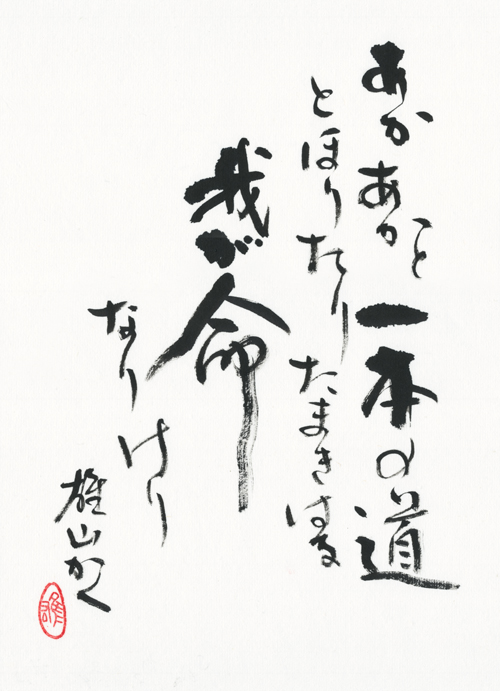 あかあかと一本の道
とほりたりたまきはる
我が命
なりけり
雄山かく
雄